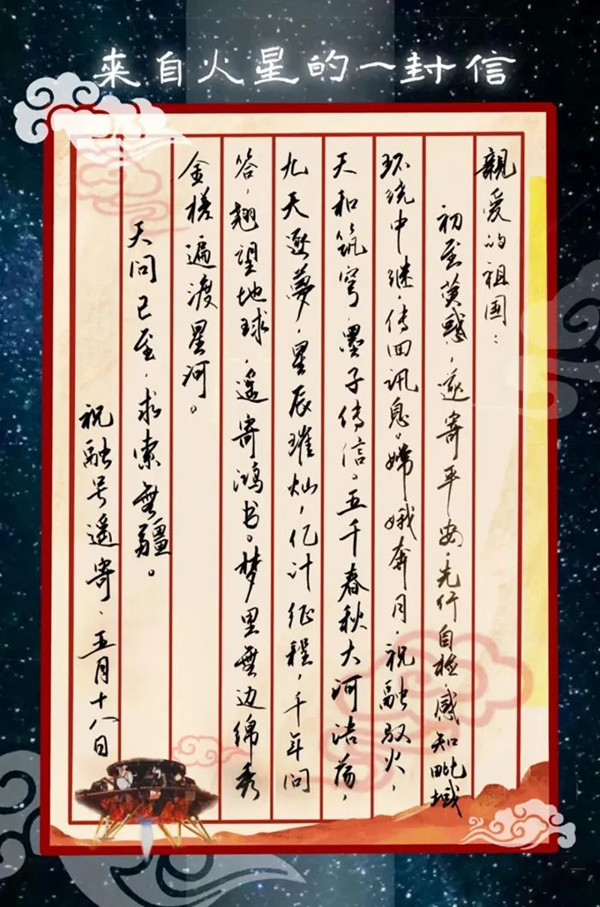 来自火星的一封信
親爱的祖国：
初至荧惑，遥寄平安，先行自检，感知毗域
环绕中继，传回讯息。嫦娥奔月，祝融驭火，
天和筑穹，墨子传信。五千春秋大河浩荡，
九天逐夢，星辰璀灿，亿计征程，千年问
答，翘望地球，遥寄鸿书。梦里無边绵秀
金槎遍渡星河。
天问已至，求索無疆。
祝融号遥寄，五月十八日